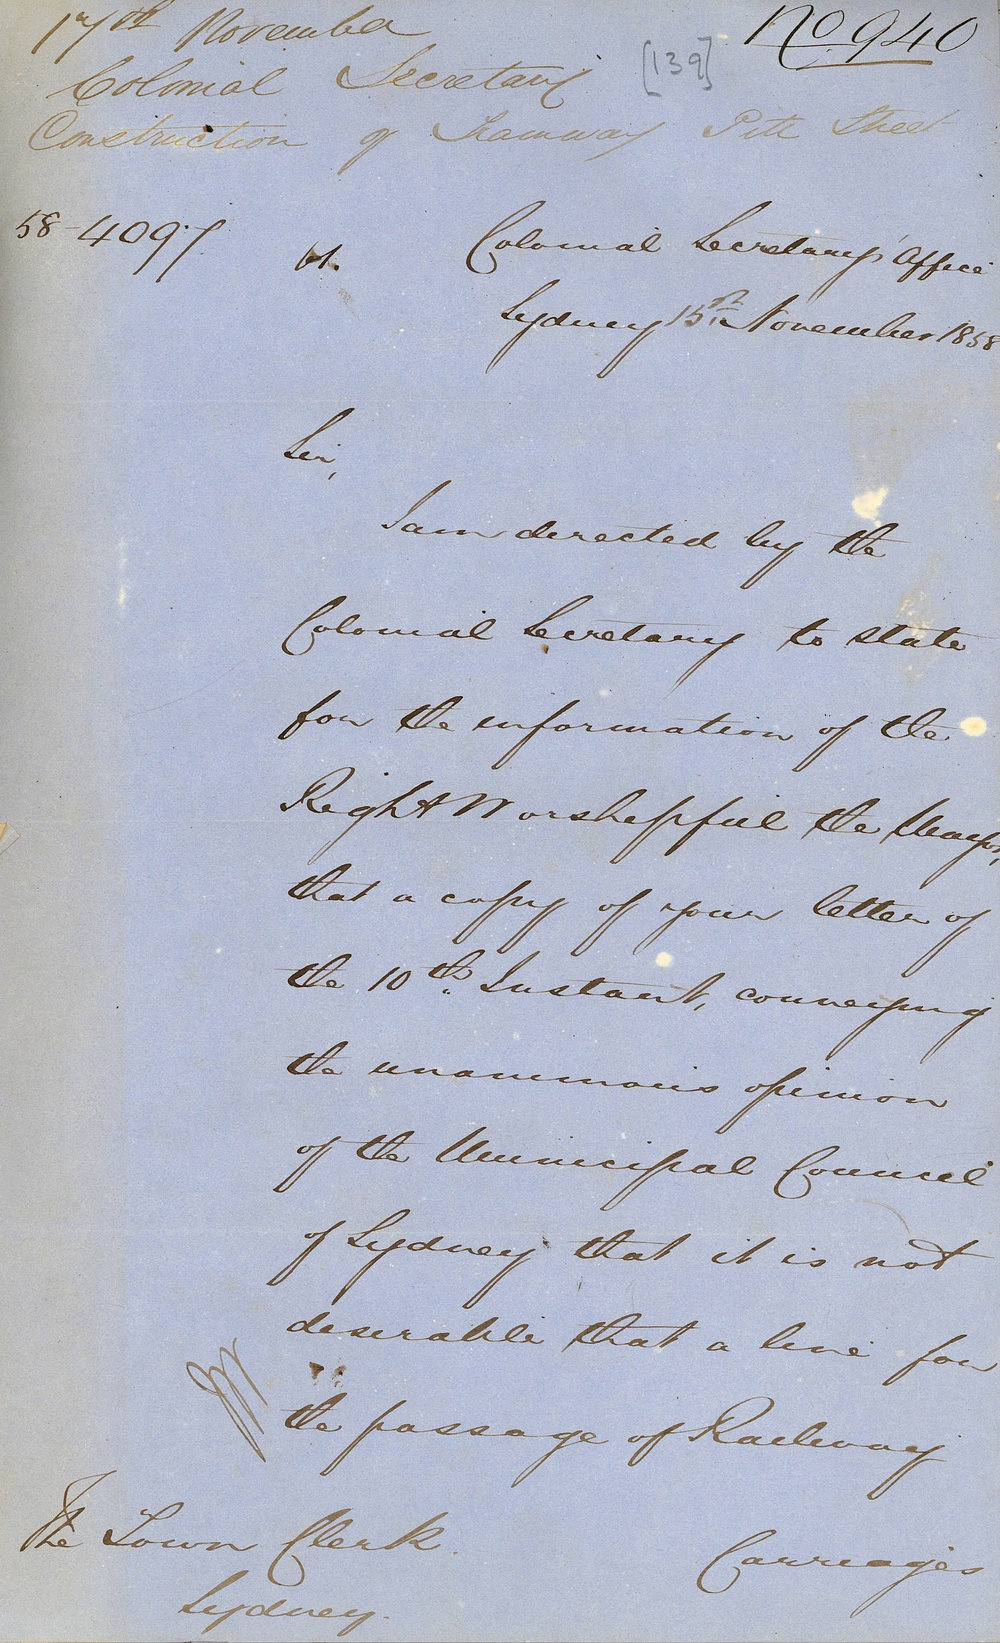 17th November
No 940
Colonial Secretary
[139]
Construction of Tramway Pitt Street
58-4097
Colonial Secretary's Office
Sydney 15th November 1858
Sir,
I am directed by the
Colonial Secretary to state
for the information of the
Right Worshipful the Mayor,
that a copy of your letter of
the 10th Instant, conveying
the unanimous opinion
of the Municipal Council
of Sydney that it is not
desirable that a line for
the passage of Railway
The Town Clerk
Carriages
Sydney.